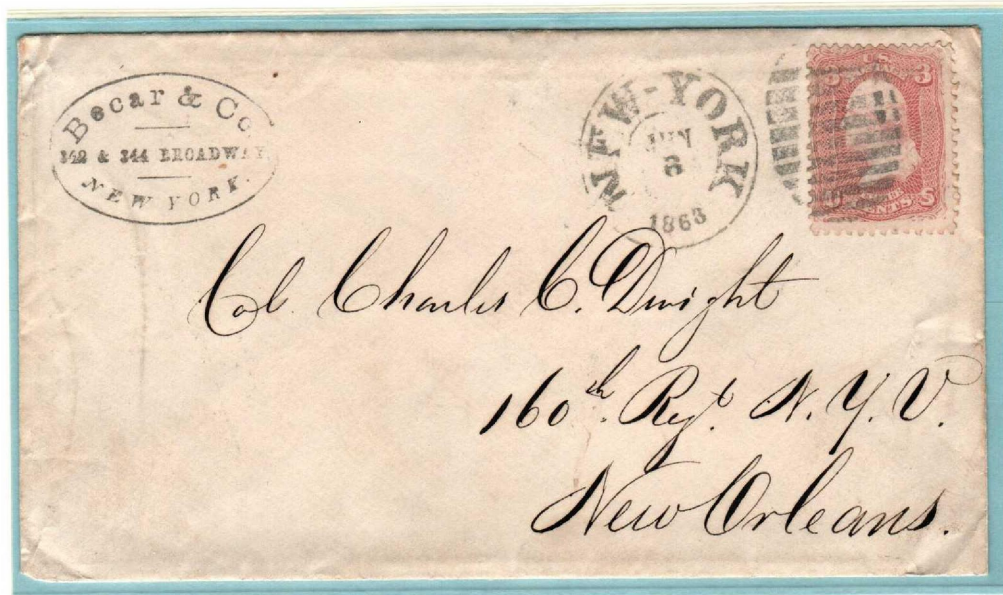 Becar & Co
342 & 344 BROADWAY
NEW YORK.
NEW-YORK
JUN
6
1863
U S
3 3
CENTS
U S
Col. Charles C. Dwight
160th. Regt. N. Y. V.
New Orleans.